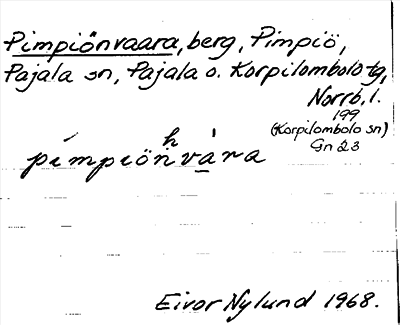 Pimpiönvaara, berg, Pimpiö,
Pajala sn, Pajala o. Korpilombolo tg,
Norrb. l.
199
(Korpilombolo sn)
Gn 23
pímpiönʰvàra
Eivor Nylund 1968.